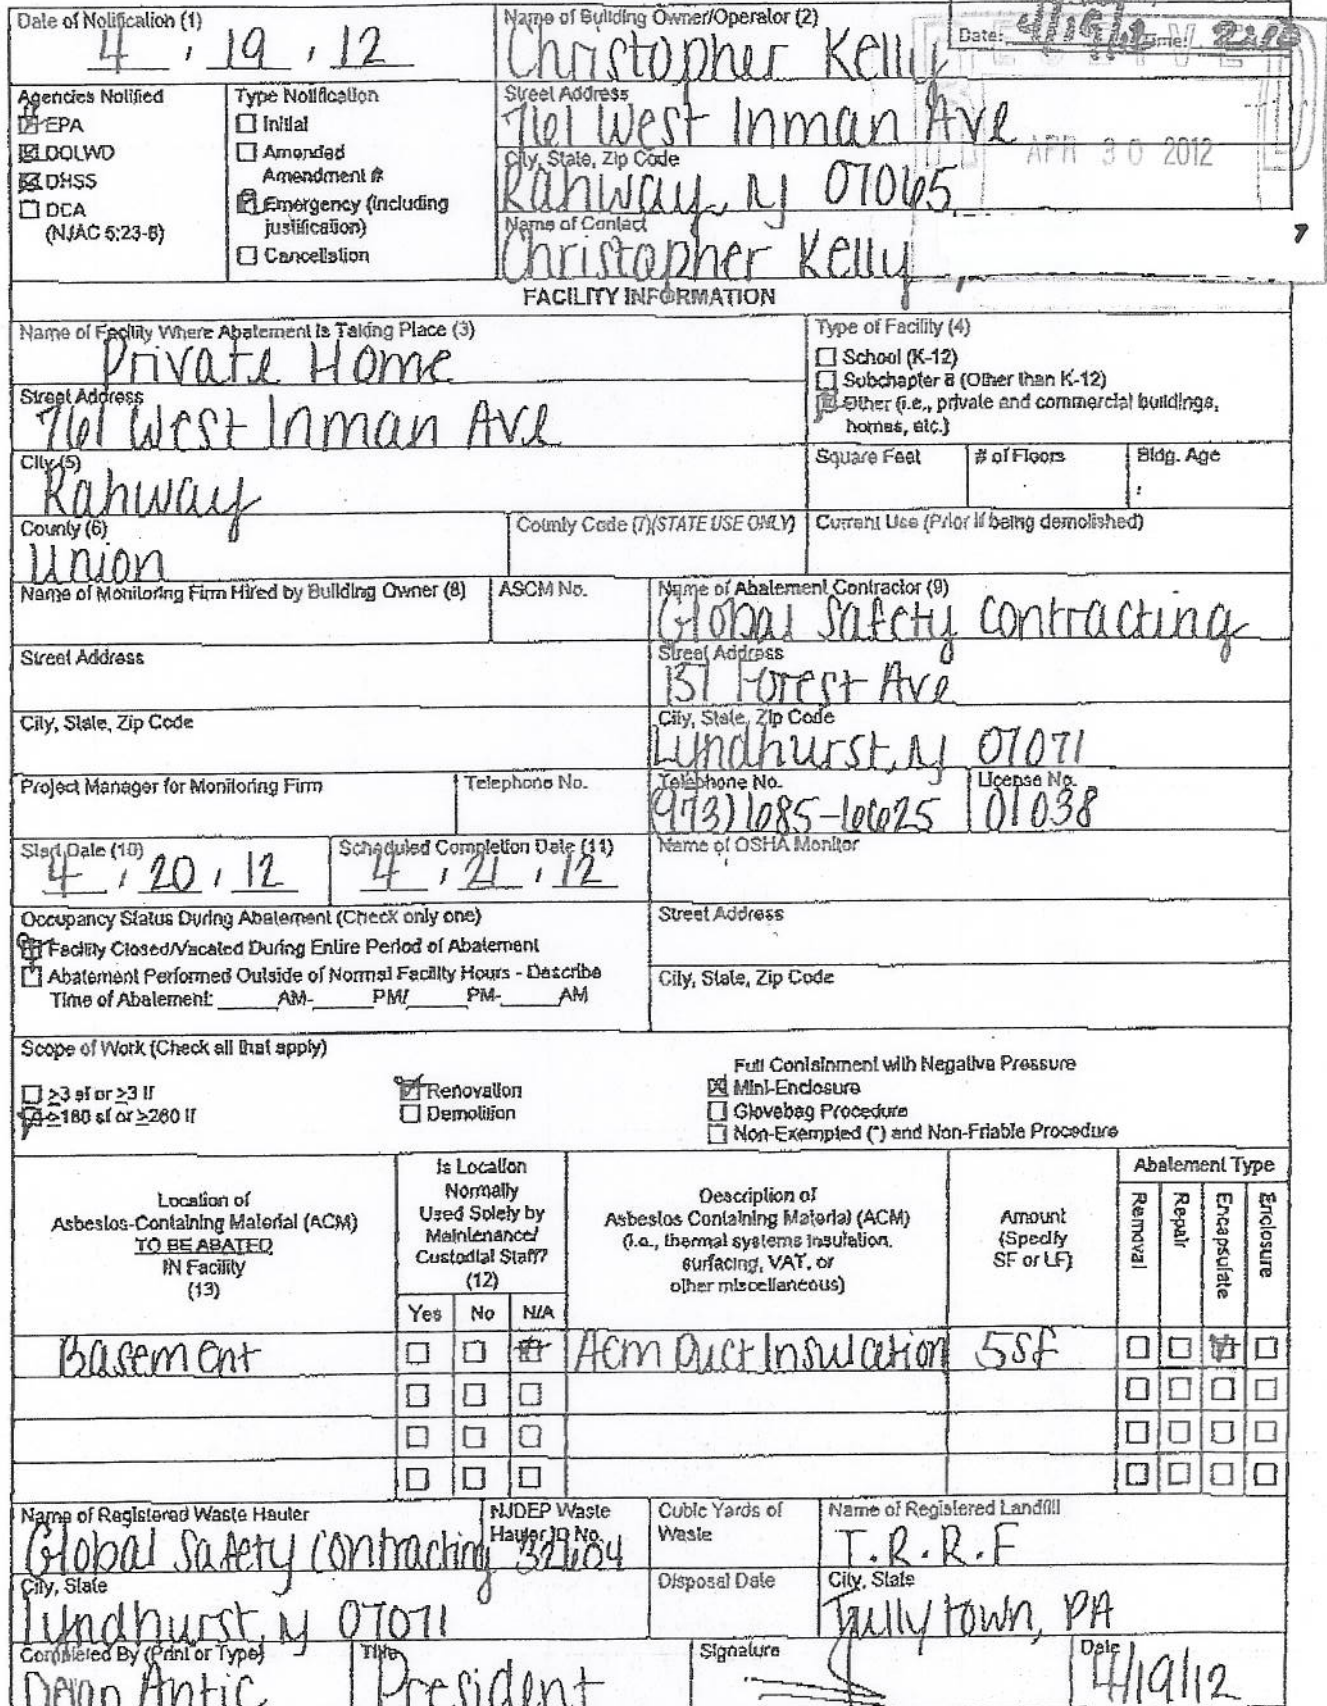 Date of Notification (1)
4 / 19 / 12
Name of Building Owner/Operator (2)
Christopher Kelly
Date: 4/19/12 Time:
Agencies Notified
EPA
DOLWD
DHSS
DCA
(NJAC 5:23-8)
Type Notification
Initial
Amended
Amendment #
Emergency (including
justification)
Cancellation
Street Address
761 West Inman Ave
City, State, Zip Code
Rahway, NJ 07065
APR 30 2012
Name of Contact
Christopher Kelly
7
FACILITY INFORMATION
Name of Facility Where Abatement is Taking Place (3)
Private Home
Street Address
761 West Inman Ave
Type of Facility (4)
School (K-12)
Subchapter 8 (Other than K-12)
Other (i.e., private and commercial buildings,
homes, etc.)
City (5)
Rahway
Square Feet
# of Floors
Bldg. Age
County (6)
Union
County Code (7)(STATE USE ONLY)
Current Use (Prior if being demolished)
Name of Monitoring Firm Hired by Building Owner (8)
ASCM No.
Name of Abatement Contractor (9)
Global Safety Contracting
Street Address
Street Address
157 Forest Ave
City, State, Zip Code
City, State, Zip Code
Lyndhurst, NJ 07071
Project Manager for Monitoring Firm
Telephone No.
Telephone No.
(973) 685-6625
License No.
01038
Start Date (10)
4 / 20 / 12
Scheduled Completion Date (11)
4 / 21 / 12
Name of OSHA Monitor
Occupancy Status During Abatement (Check only one)
Facility Closed/Vacated During Entire Period of Abatement
Abatement Performed Outside of Normal Facility Hours - Describe
Time of Abatement: ______AM-______PM/______PM-______AM
Street Address
City, State, Zip Code
Scope of Work (Check all that apply)
≥3 sf or ≥3 lf
≥160 sf or ≥260 lf
Renovation
Demolition
Full Containment with Negative Pressure
Mini-Enclosure
Glovebag Procedure
Non-Exempted (*) and Non-Friable Procedure
Location of
Asbestos-Containing Material (ACM)
TO BE ABATED
IN Facility
(13)
Is Location
Normally
Used Solely by
Maintenance/
Custodial Staff?
(12)
Yes No N/A
Description of
Asbestos Containing Material (ACM)
(i.e., thermal systems insulation,
surfacing, VAT, or
other miscellaneous)
Amount
(Specify
SF or LF)
Abatement Type
Removal
Repair
Encapsulate
Enclosure
Basement
ACM Duct Insulation
5sf
Name of Registered Waste Hauler
Global Safety Contracting
NJDEP Waste
Hauler ID No.
32604
Cubic Yards of
Waste
Name of Registered Landfill
T.R.R.F
City, State
Lyndhurst, NJ 07071
Disposal Date
City, State
Tullytown, PA
Completed By (Print or Type)
Antic
Title
President
Signature
Date
4/19/12